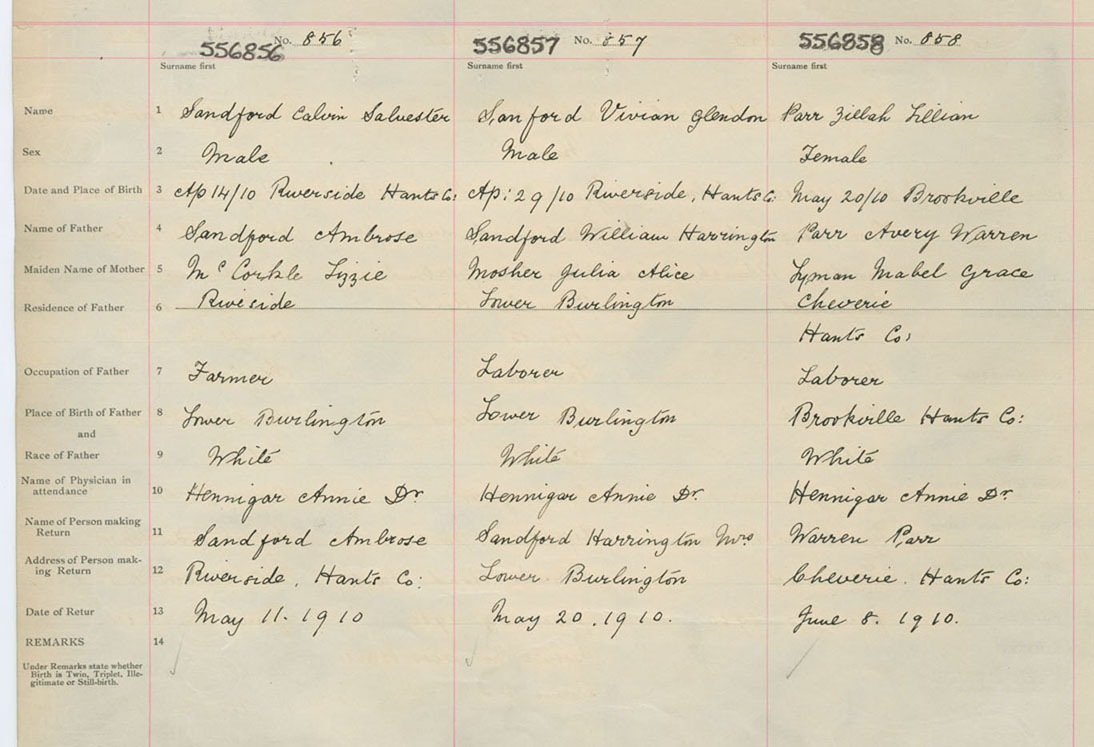 556856 No. 856 556857 No. 857 556858 No. 858
Surname first Surname first Surname first
Name 1 Sandford Calvin Salvester Sanford Vivian Glendon Parr Zillah Lillian
Sex 2 Male Male Female
Date and Place of Birth 3 Ap 14/10 Riverside Hants Co: Ap: 29/10 Riverside, Hants Co: May 20/10 Brookville
Name of Father 4 Sandford Ambrose Sandford William Harrington Parr Avery Warren
Maiden Name of Mother 5 McCorkle Lizzie Mosher Julia Alice Lyman Mabel Grace
Residence of Father 6 Riveside Lower Burlington Cheverie
Hants Co:
Occupation of Father 7 Farmer Laborer Laborer
Place of Birth of Father 8 Lower Burlington Lower Burlington Brookville Hants Co:
and
Race of Father 9 White White White
Name of Physician in
attendance 10 Hennigar Annie Dr Hennigar Annie Dr. Hennigar Annie Dr
Name of Person making
Return 11 Sandford Ambrose Sandford Harrington Mrs Warren Parr
Address of Person mak-
ing Return 12 Riverside, Hants Co: Lower Burlington Cheverie. Hants Co:
Date of Retur 13 May 11. 1910 May 20. 1910. June 8. 1910.
REMARKS 14
Under Remarks state whether
Birth is Twin, Triplet, Ille-
gitimate or Still-birth.